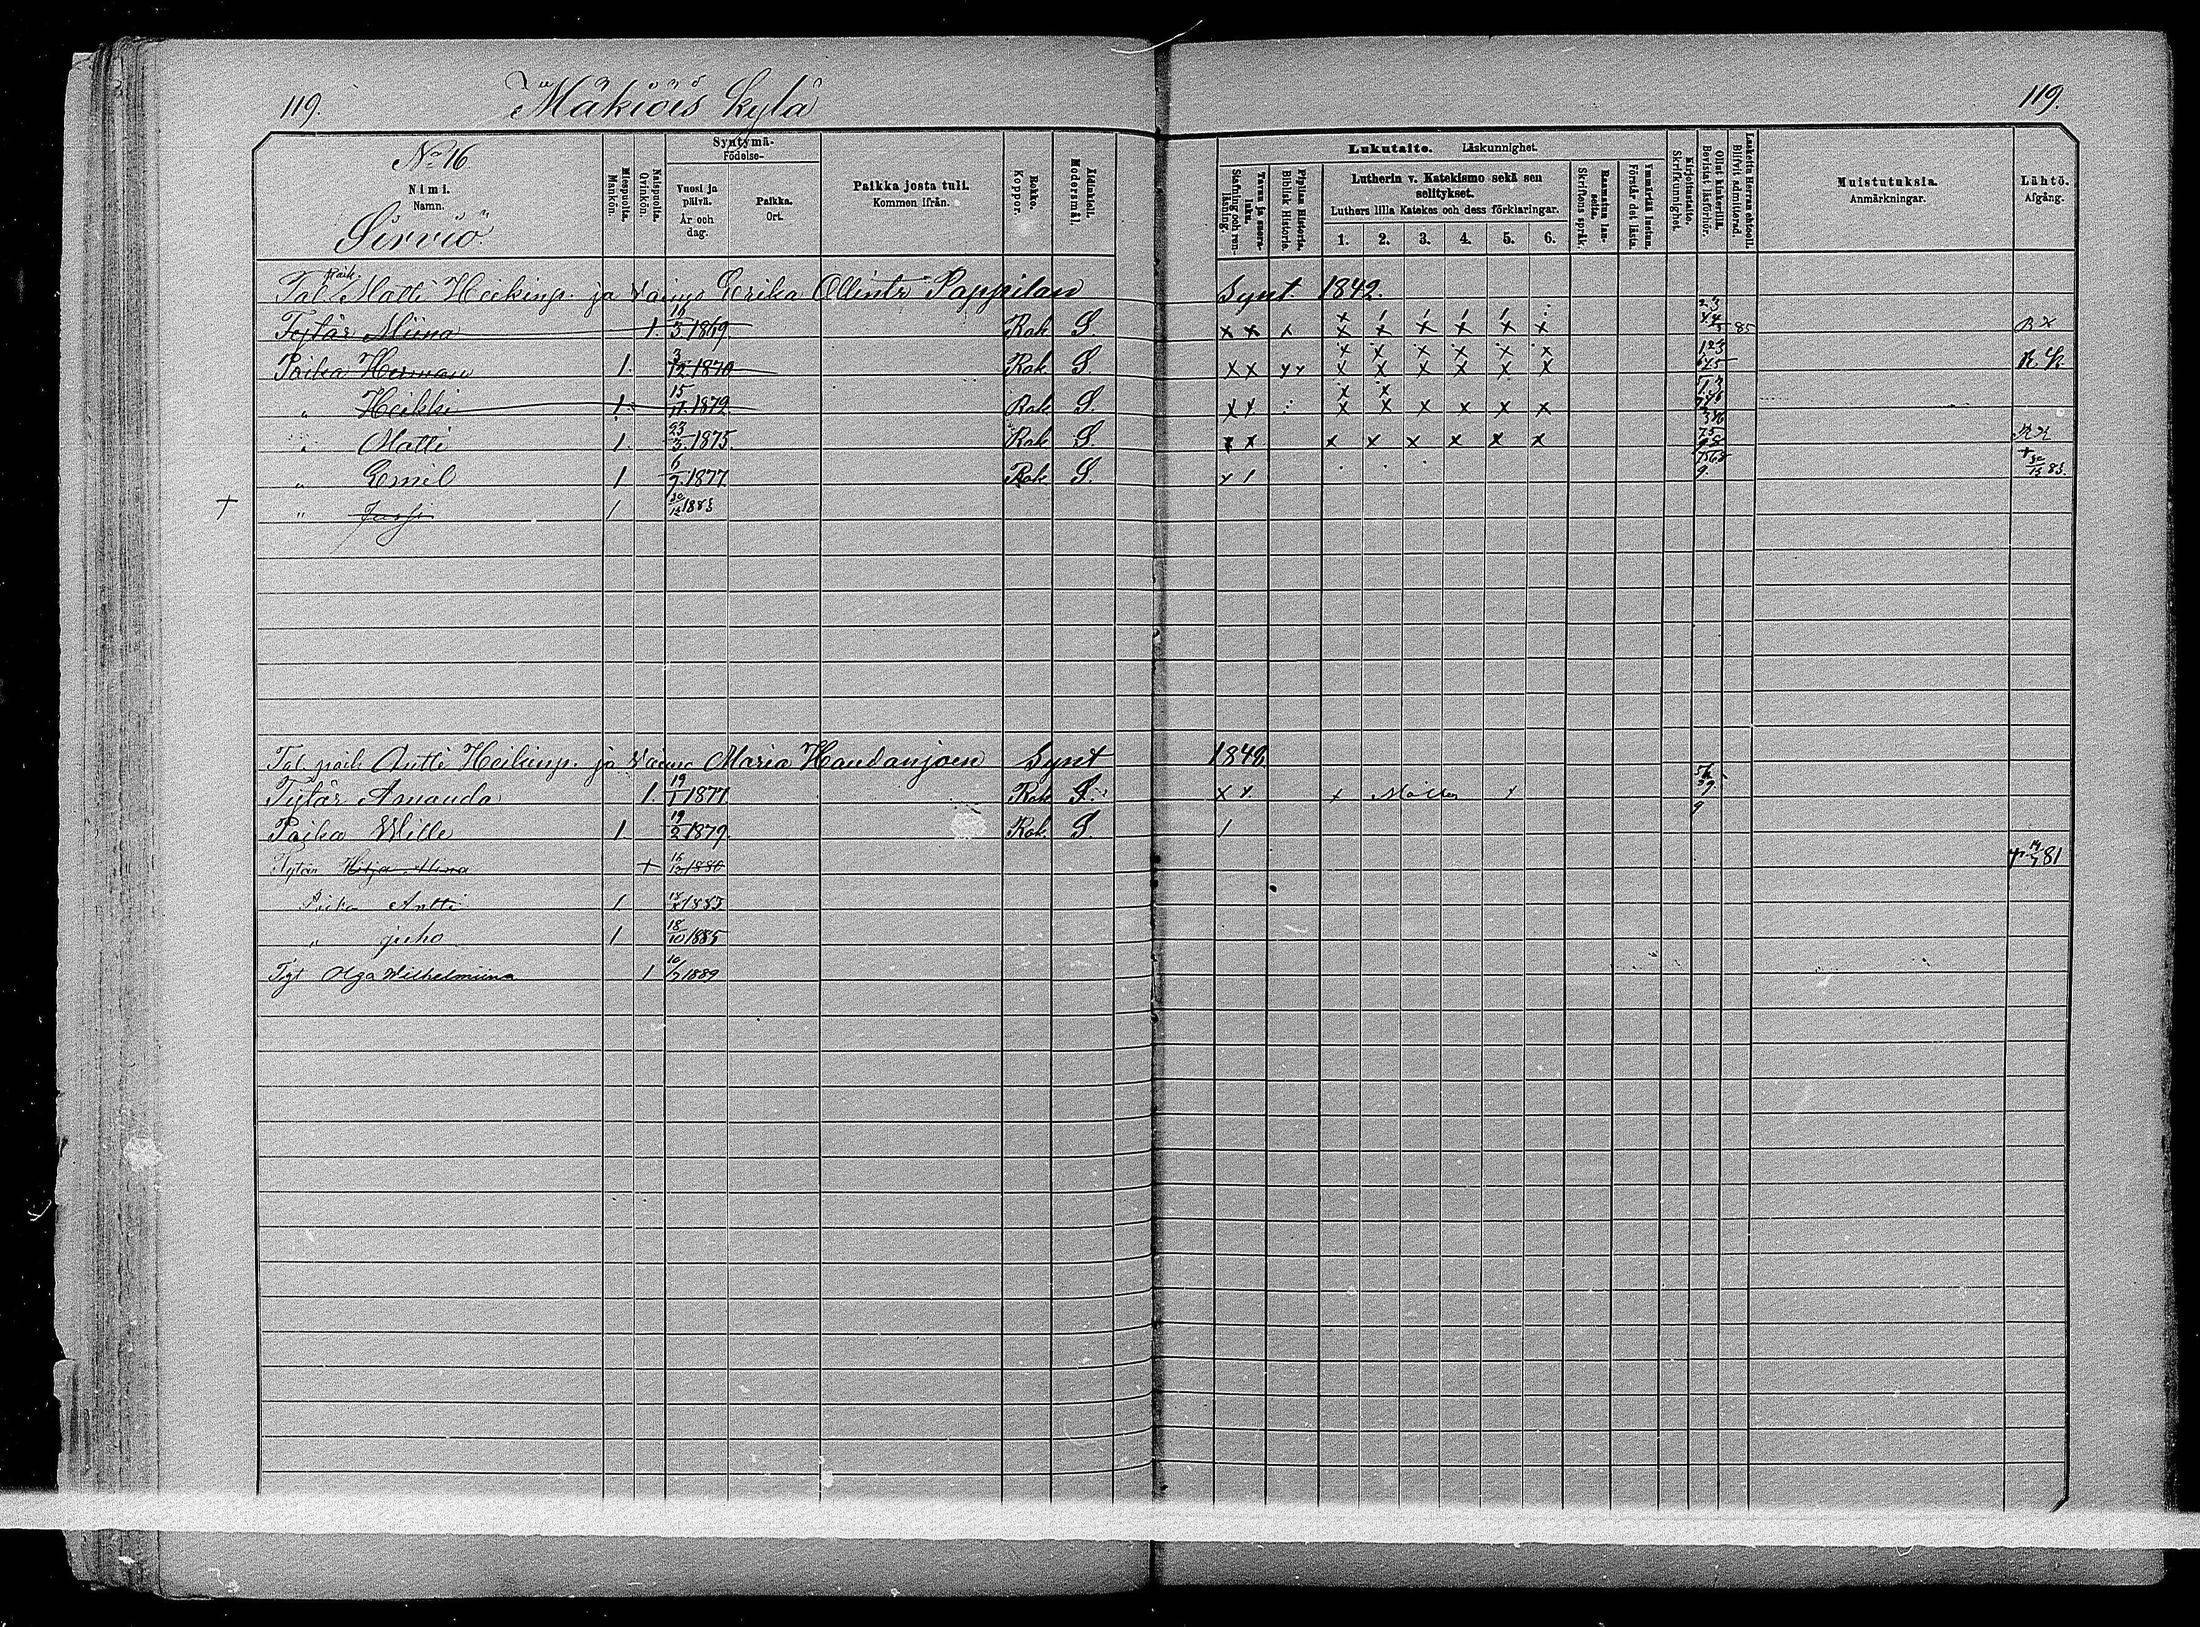 119. Mäkiöis kylä 119.
No 16
Nimi.
Namn.
Sirviö
Miespuolia.
Mankön.
Naispuolia.
Qvinkön.
Syntymä-
Födelse-
Vuosi ja päivä.
År och dag.
Paikka.
Ort.
Paikka josta tuli.
Kommen ifrån.
Rokko.
Koppor.
Äidinkieli.
Modersmål.
Lukutaito. Läskunnighet.
Tavuu ja suora-luku.
Stafning och ren-läsning.
Piplian Historia.
Biblisk Historia.
Lutherin v. Katekismo sekä sen selitykset.
Luthers lilla Katekes och dess förklaringar.
1. 2. 3. 4. 5. 6.
Raamatun lauseita.
Skriftens språk.
Ymmärtää luetun.
Förstår det lästa.
Kirjoitustaito.
Skrifkunnighet.
Ollut kinkerillä.
Bevistat läsförhör.
Laskettu Herran ehtool.
Blifvit admitterad.
Muistutuksia.
Anmärkningar.
Lähtö.
Afgång.
Tal. poik. Matti Heikinp. ja vaimo Eerika Ollintr Pappilan Synt. 1842.
Tytär Miina 1. 16/3 1869. Rok S. x x x x x x x x x 85
Poika Herman 1. 3/12 1870 Rok S. x x x x x x x x
" Heikki 1. 15/11 1872. Rok S. x x x x x x
" Matti 1. 23/3 1875. Rok S. x x x x x x x x
" Eemil 1 6/7 1877. Rok S.
+ " Jussi 1 30/12 1883
Tal poik Antti Heikinp. ja vaimo Maria Haudanjoen Synt 1842
Tytär Amanda 1. 19/1 1877. Rok S. x x x
Poika Wille 1 19/2 1879. Rok S. 1
Tytär Hilja Miina + 16/12 1880 81
Poika Antti 1 1883
" juho 1 18/10 1885
Tyt Olga Wilhelmiina 1 10/7 1889